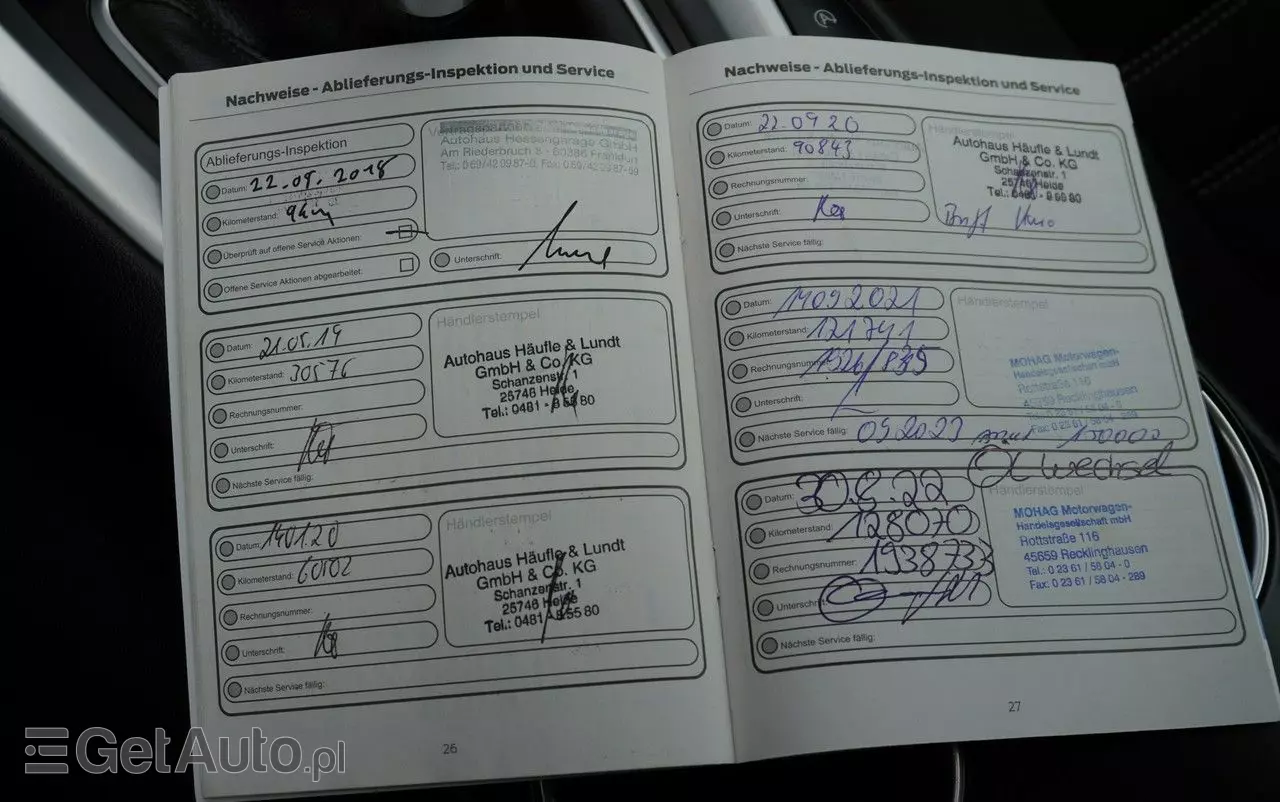 Nachweise - Ablieferungs-Inspektion und Service
Ablieferungs-Inspektion
Datum: 22.09.2018
Kilometerstand: 9km
Überprüft auf offene Service Aktionen:
Offene Service Aktionen abgearbeitet:
Autohaus Hessengarage GmbH
Am Riederbruch
Unterschrift:
Datum: 21.05.19
Kilometerstand: 30576
Rechnungsnummer:
Unterschrift:
Nächste Service fällig:
Händlerstempel
Autohaus Häufle & Lundt
GmbH & Co. KG
Schanzenstr. 1
25746 Heide
Tel.: 0481 - 8 55 80
Datum: 140120
Kilometerstand: 60102
Rechnungsnummer:
Unterschrift:
Nächste Service fällig:
Händlerstempel
Autohaus Häufle & Lundt
GmbH & Co. KG
Schanzenstr. 1
25746 Heide
Tel.: 0481 - 8 55 80
26
Nachweise - Ablieferungs-Inspektion und Service
Datum: 22.0920
Kilometerstand: 90843
Rechnungsnummer:
Unterschrift:
Nächste Service fällig:
Händlerstempel
Autohaus Häufle & Lundt
GmbH & Co. KG
Schanzenstr. 1
25746 Heide
Tel.: 0481 - 8 55 80
Datum: 14092021
Kilometerstand: 121741
Rechnungsnummer: 1926/835
Unterschrift:
Nächste Service fällig: 09.2023 150000
Händlerstempel
MOHAG Motorwagen-
Handelsgesellschaft mbH
Rottstraße 116
45659 Recklinghausen
Tel.: 0 23 61 / 58 04 - 0
Fax: 0 23 61 / 58 04 - 289
Öl wechsel
Datum: 30.8.22
Kilometerstand: 128070
Rechnungsnummer: 1938733
Unterschrift:
Nächste Service fällig:
Händlerstempel
MOHAG Motorwagen-
Handelsgesellschaft mbH
Rottstraße 116
45659 Recklinghausen
Tel.: 0 23 61 / 58 04 - 0
Fax: 0 23 61 / 58 04 - 289
27
GetAuto.pl